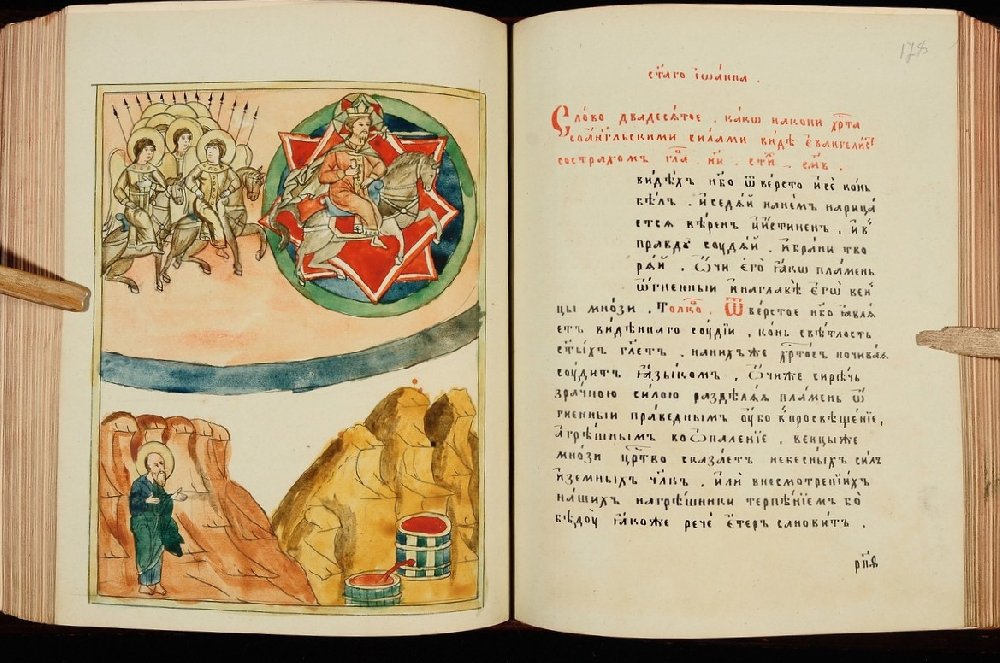 ст҃аго іѡанна .
Сло́во двадеся́тое . ка́кѡ на кони х҇рта
съ а́нг҃льскими силами виде є҆вангели҇с
со страхомъ гл҃а
ви́дѣхъ не́бо ѿверсто и се́ конь
бѣлъ . и седя́й на не́мъ нарица́
ется вѣ́ренъ и и́стиненъ . и в
пра́вдꙋ сꙋдя́й . и бра́ни тво
ря́й . Ѻ҆чи є҆го̀ ꙗ҆́кѡ пла́мень
ѻ҆́гненный и на главѣ̀ є҆гѡ̀ вен
цы мно́зи . Толк . Ѿ ве́рстое не́бо ꙗ҆вля́
етъ ви́дѣннаго сꙋдіи , ко́нь свѣ́тлость
ст҃ы́хъ гл҃етъ . на ни́хъ же х҇ртосъ почива́я
сꙋдитъ ꙗ҆зы́комъ . Ѻ҆чи же си́рѣчь
зра́чною си́лою раздѣля́я пла́мень ѻ҆́
гненный пра́веднымъ ꙋ҆́бо к просвѣще́ніе ,
а грѣ́шнымъ во ѡ҆пале́ніе , венцы́ же
мно́зи ц҇ртво сказꙋ́етъ небе́сныхъ си́лъ
и земны́хъ чл҃къ .
на́шихъ на грѣ́шники терпѣ́ніемъ по
бѣ́дꙋ ꙗ҆́коже речѐ є҆́теръ сановитъ .
рп҃в
178